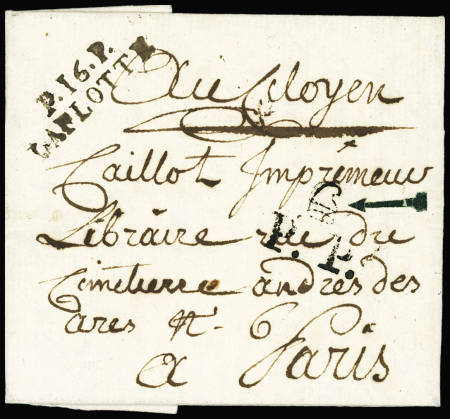 P.16.P.
LAFLOTTE
Au Citoyen
Caillot Imprimeur
P.P.
Libraire rue du
Cimetierre andres des
arcs N- 6
a Paris